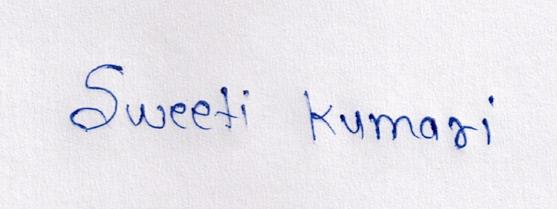 Sweeti Kumari